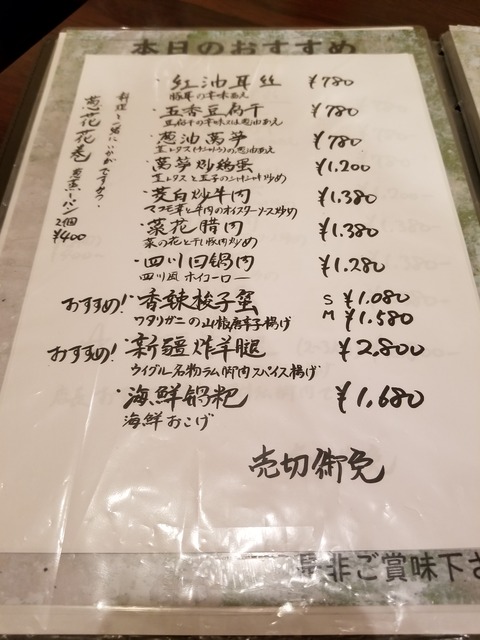 本日のおすすめ
紅油耳丝 ¥780
豚耳の辛味あえ
・五香豆腐干 ¥780
豆腐干の辛味又は葱油あえ
・葱油萵笋 ¥780
茎レタス(チシャトウ)の葱油あえ
・萵笋炒鶏蛋 ¥1,200
茎レタスと玉子のシャキシャキ炒め
・茭白炒牛肉 ¥1,380
マコモ茸と牛肉のオイスターソース炒め
・菜花腊肉 ¥1,380
菜の花と干し豚肉炒め
・四川回鍋肉 ¥1,280
四川風ホイコーロー
おすすめ!・香辣梭子蟹 S ¥1,080
M ¥1,580
ワタリガニの山椒唐辛子揚げ
おすすめ!・新疆炸羊腿 ¥2,800
ウイグル名物ラム脚肉スパイス揚げ
・海鮮鍋粑 ¥1,680
海鮮おこげ
売切御免
料理と一緒にいかがですか?
葱花花巻
蒸しパン
2個
¥400
是非ご賞味下さ